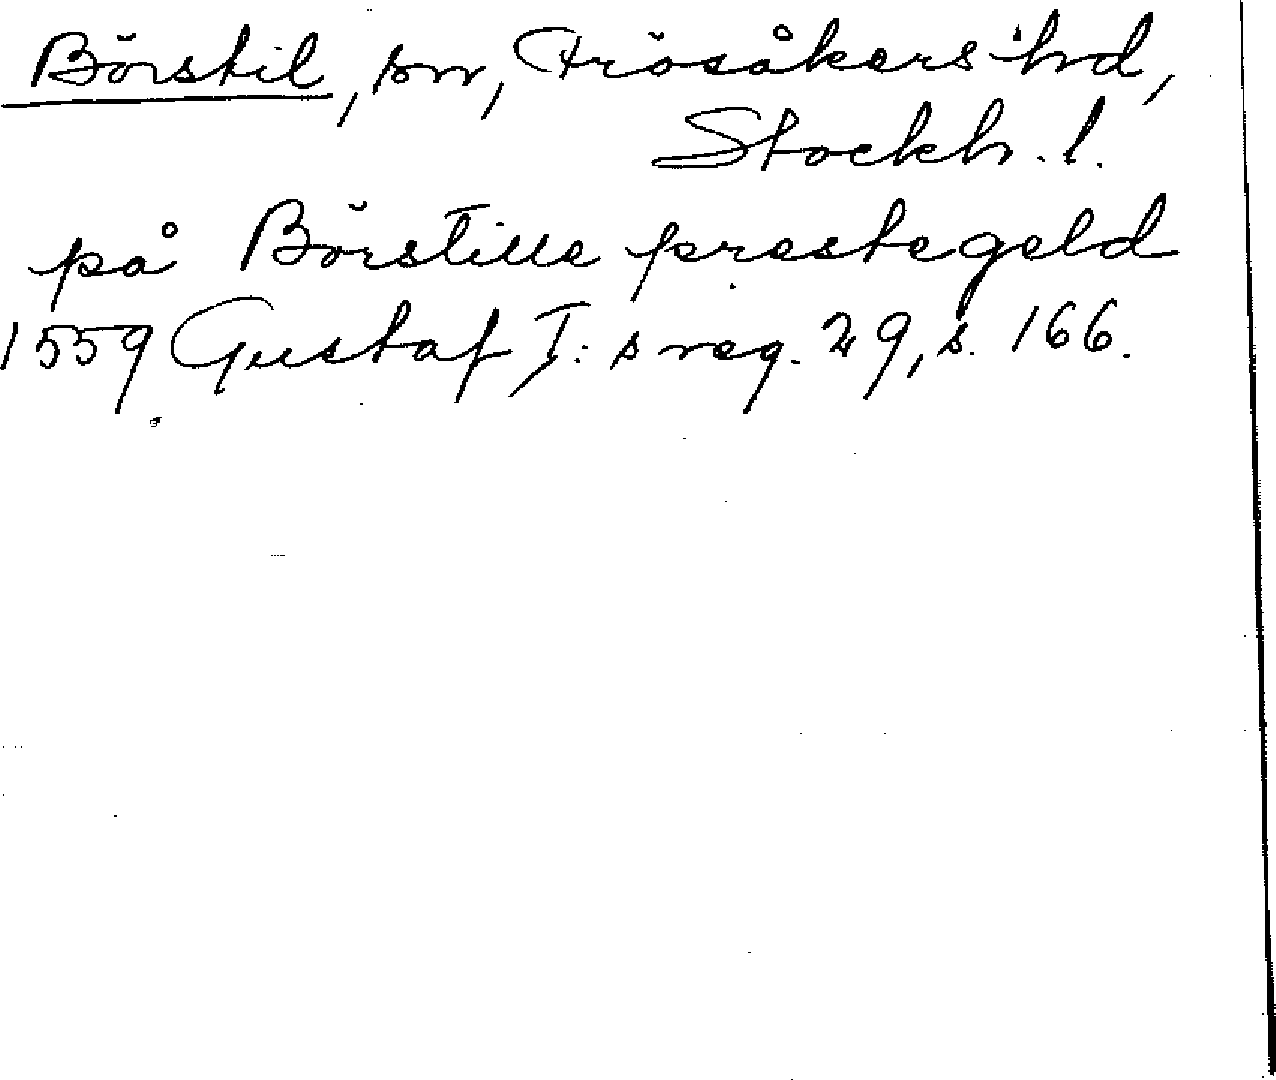 Börstil, sn, Frösåkers hd,
Stockh. l.
på Börstille prestegeld
1559 Gustaf I:s reg. 29, s. 166.